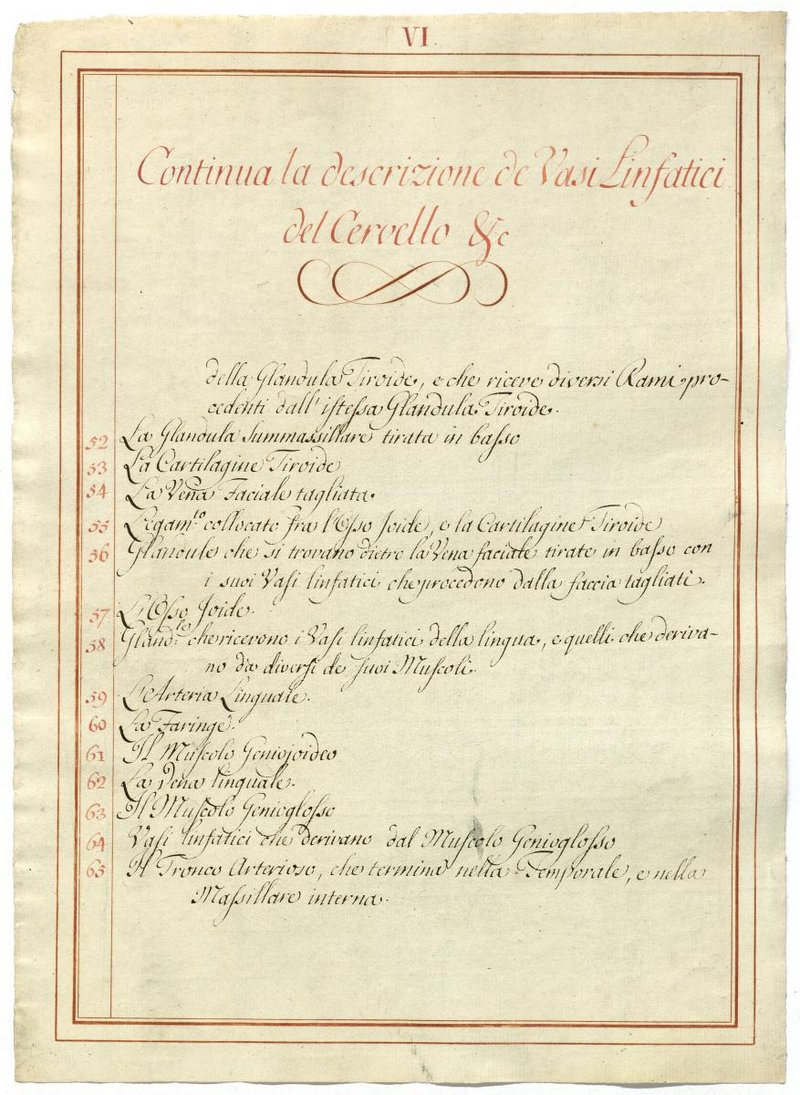 VI
Continua la descrizione de Vasi Linfatici
del Cervello &c
della Glandula Tiroide, e che riceve diversi Rami pro-
cedenti dall' istessa Glandula Tiroide.
52 La Glandula Summassillare tirata in basso
53 La Cartilagine Tiroide
54 La Vena Faciale tagliata.
55 Legam.to collocato fra l'Osso Joide, e la Cartilagine Tiroide
56 Glandule che si trovano dietro la Vena faciale tirate in basso con
i suoi Vasi linfatici che procedono dalla faccia tagliati.
57 L'Osso Joide.
58 Gland.le che ricevono i Vasi linfatici della lingua, e quelli che deriva-
no da diversi de suoi Muscoli.
59 L'Arteria Linguale.
60 La Faringe.
61 Il Muscolo Geniojoideo
62 La Vena linguale.
63 Il Muscolo Genioglosso
64 Vasi linfatici che derivano dal Muscolo Genioglosso
65 Il Tronco Arterioso, che termina nella Temporale, e nella
Massillare interna.